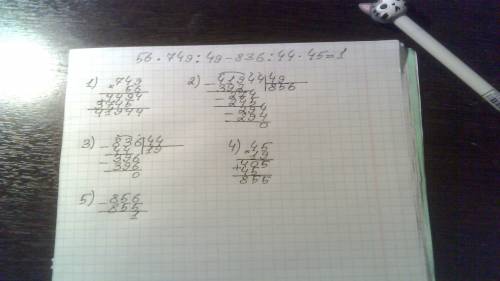 56 · 749 : 49 - 836 : 44 · 45 = 1
1) × 749
56
4494
3745
41944
2) - 41944 | 49
392 856
- 274
245
- 294
294
0
3) - 836 | 44
44 19
- 396
396
0
4) × 45
19
405
+ 45
855
5) - 856
855
1